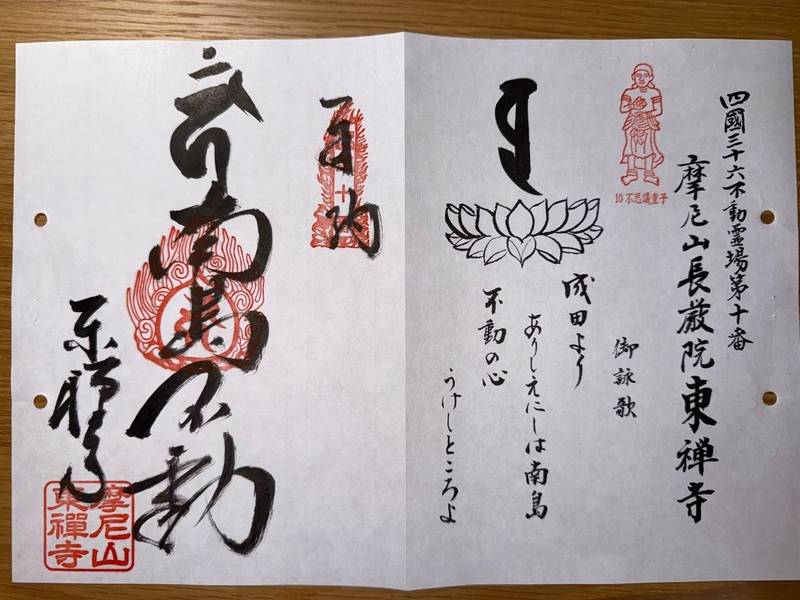 四國三十六不動霊場第十番
摩尼山長厳院東禅寺
10 不思議童子
御詠歌
成田より
ありしえにしは南島
不動の心
うけしところよ
奉納
南島不動
東禅寺
摩尼山
東禪寺